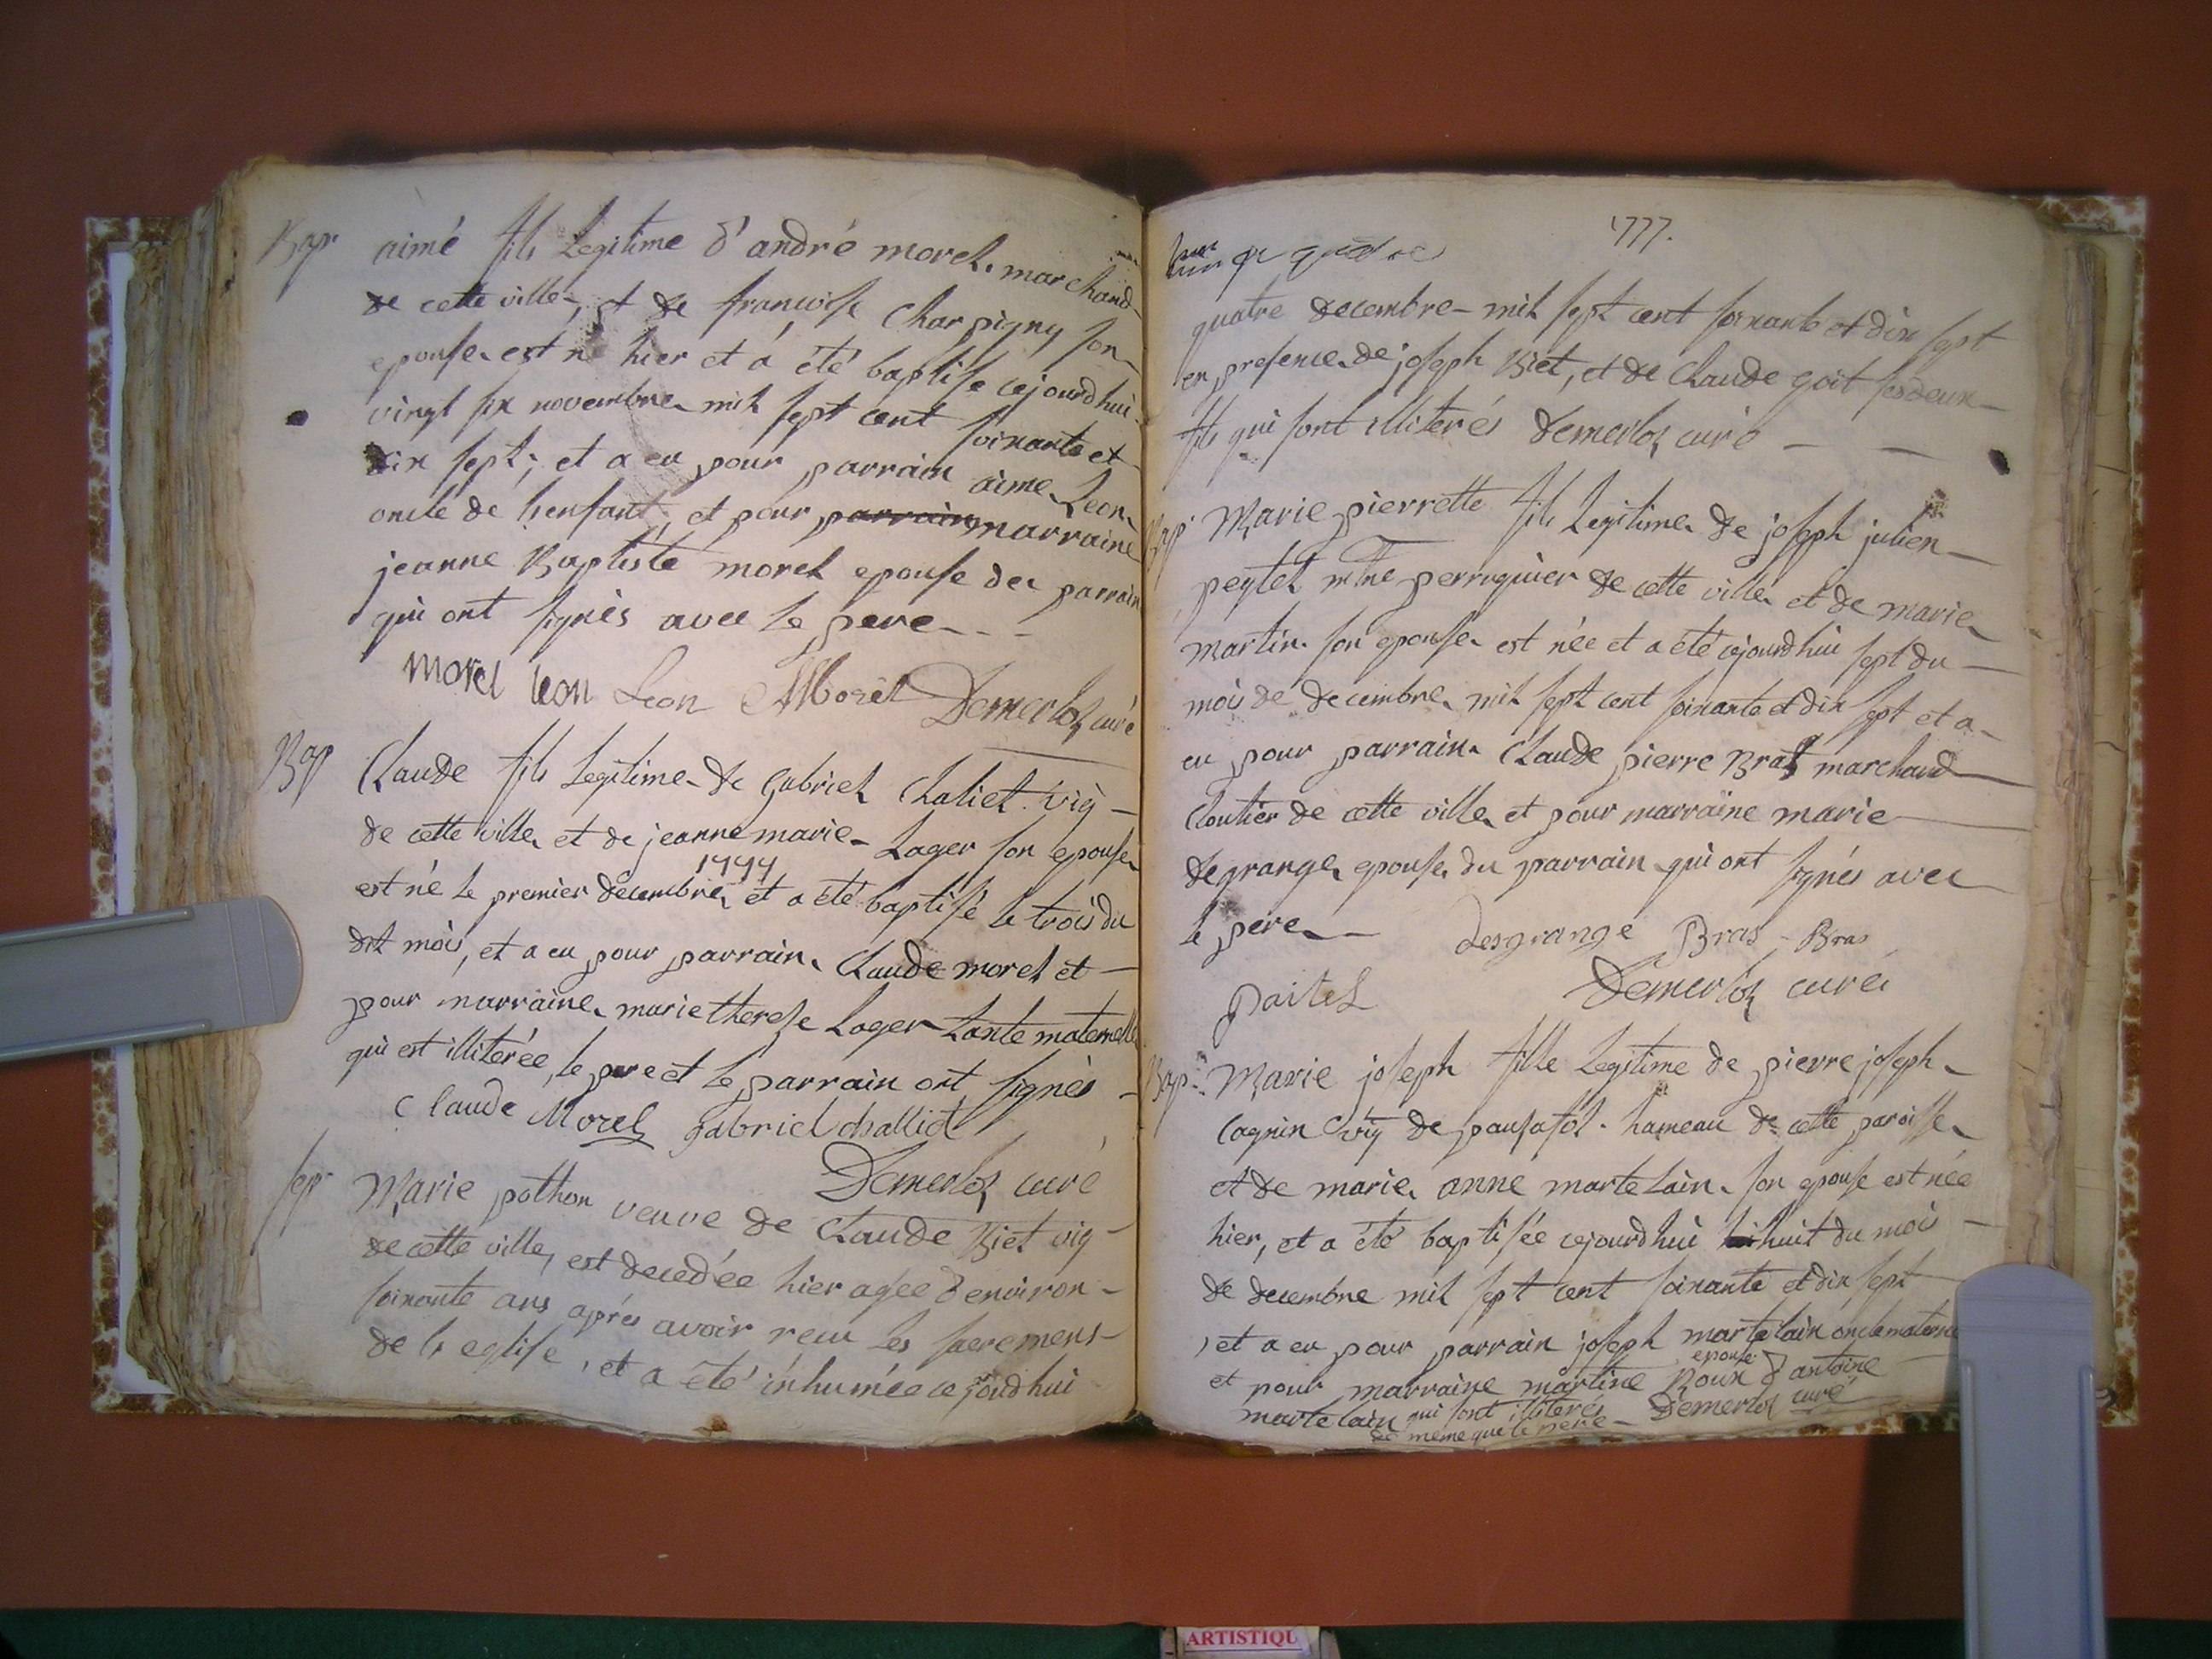 Bap aimé fils Legitime d'andré morel marchand
de cette ville, et de francoise Charpigny son
epouse est né hier et a été baptisé cejourdhui
vingt six novembre mil sept cent soixante et
dix sept; et a eu pour parrain aimé Leon
oncle de l'enfant, et pour parrain marraine
jeanne Baptiste morel epouse der parrain
qui ont signés avec le pere
morel leon Leon Morel Demerloz curé
Bap Claude fils Legitime de Gabriel Chaliet vig
de cette ville et de jeanne marie Lager son epouse
1777
est né le premier decembre et a été baptisé le trois du
dit mois, et a eu pour parrain Claude morel et
pour marraine marie therese Lager tante maternelle
qui est illiterée, le pere et le parrain ont signés
Claude Morel gabriel challiet
Demerloz curé
sep Marie pothon veuve de Claude Biet vig
de cette ville, est decedée hier agee d'environ
soixante ans aprés avoir reçu les sacremens
de l'eglise, et a été inhumée cejourdhui
1777.
quatre decembre mil sept cent soixante et dix sept
en presence de joseph Biet, et de Claude goit ses deux
fils qui sont illiterés Demerloz curé
Bap Marie pierrette fils Legitime de joseph julien
peytel mtre perruquier de cette ville et de marie
martin son epouse est née et a été cejourdhui sept du
mois de decembre mil sept cent soixante et dix sept et a
eu pour parrain Claude pierre Bras marchand
Cloutier de cette ville et pour marraine marie
degrange epouse du parrain qui ont signés avec
le pere desgrange Bras Bras
paitel Demerloz curé
Bap Marie joseph fille Legitime de pierre joseph
Cagnin vig de pausafol hameau de cette paroisse
et de marie anne martelain son epouse est née
hier, et a été baptisée cejourdhui huit du mois
de decembre mil sept cent soixante et dix sept
et a eu pour parrain joseph martelain oncle maternel
et pour marraine martine Roux epouse d'antoine
martelain qui sont illiterés Demerloz curé
de meme que le pere
ARTISTIQU